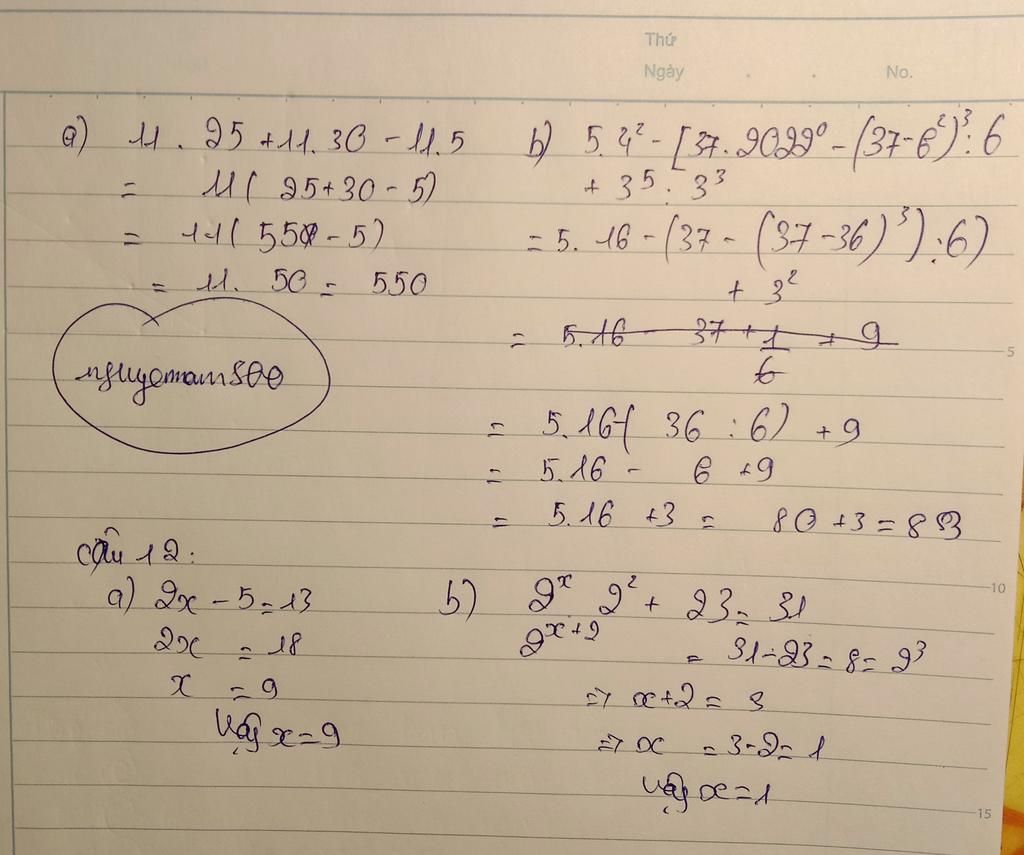 Thứ
Ngày . . No.
a) 11 . 25 + 11.30 - 11.5
= 11( 25+30 - 5)
= 11( 55 - 5)
= 11. 50 = 550
b) 5.4² - [37. 2022⁰ - (37-6²)³: 6
+ 3⁵ : 3³
= 5. 16 - (37 - (37-36)³) : 6)
+ 3²
= 5.16 - 37 + 1/6 + 9
= 5.16 - ( 36 : 6) + 9
= 5.16 - 6 + 9
= 5.16 + 3 = 80 + 3 = 83
Câu 12:
a) 2x - 5 = 13
2x = 18
x = 9
Vậy x = 9
b) 2ˣ 2² + 23 = 31
2ˣ⁺² = 31 - 23 = 8 = 2³
=> x+2 = 3
=> x = 3-2 = 1
Vậy x = 1
5
10
15